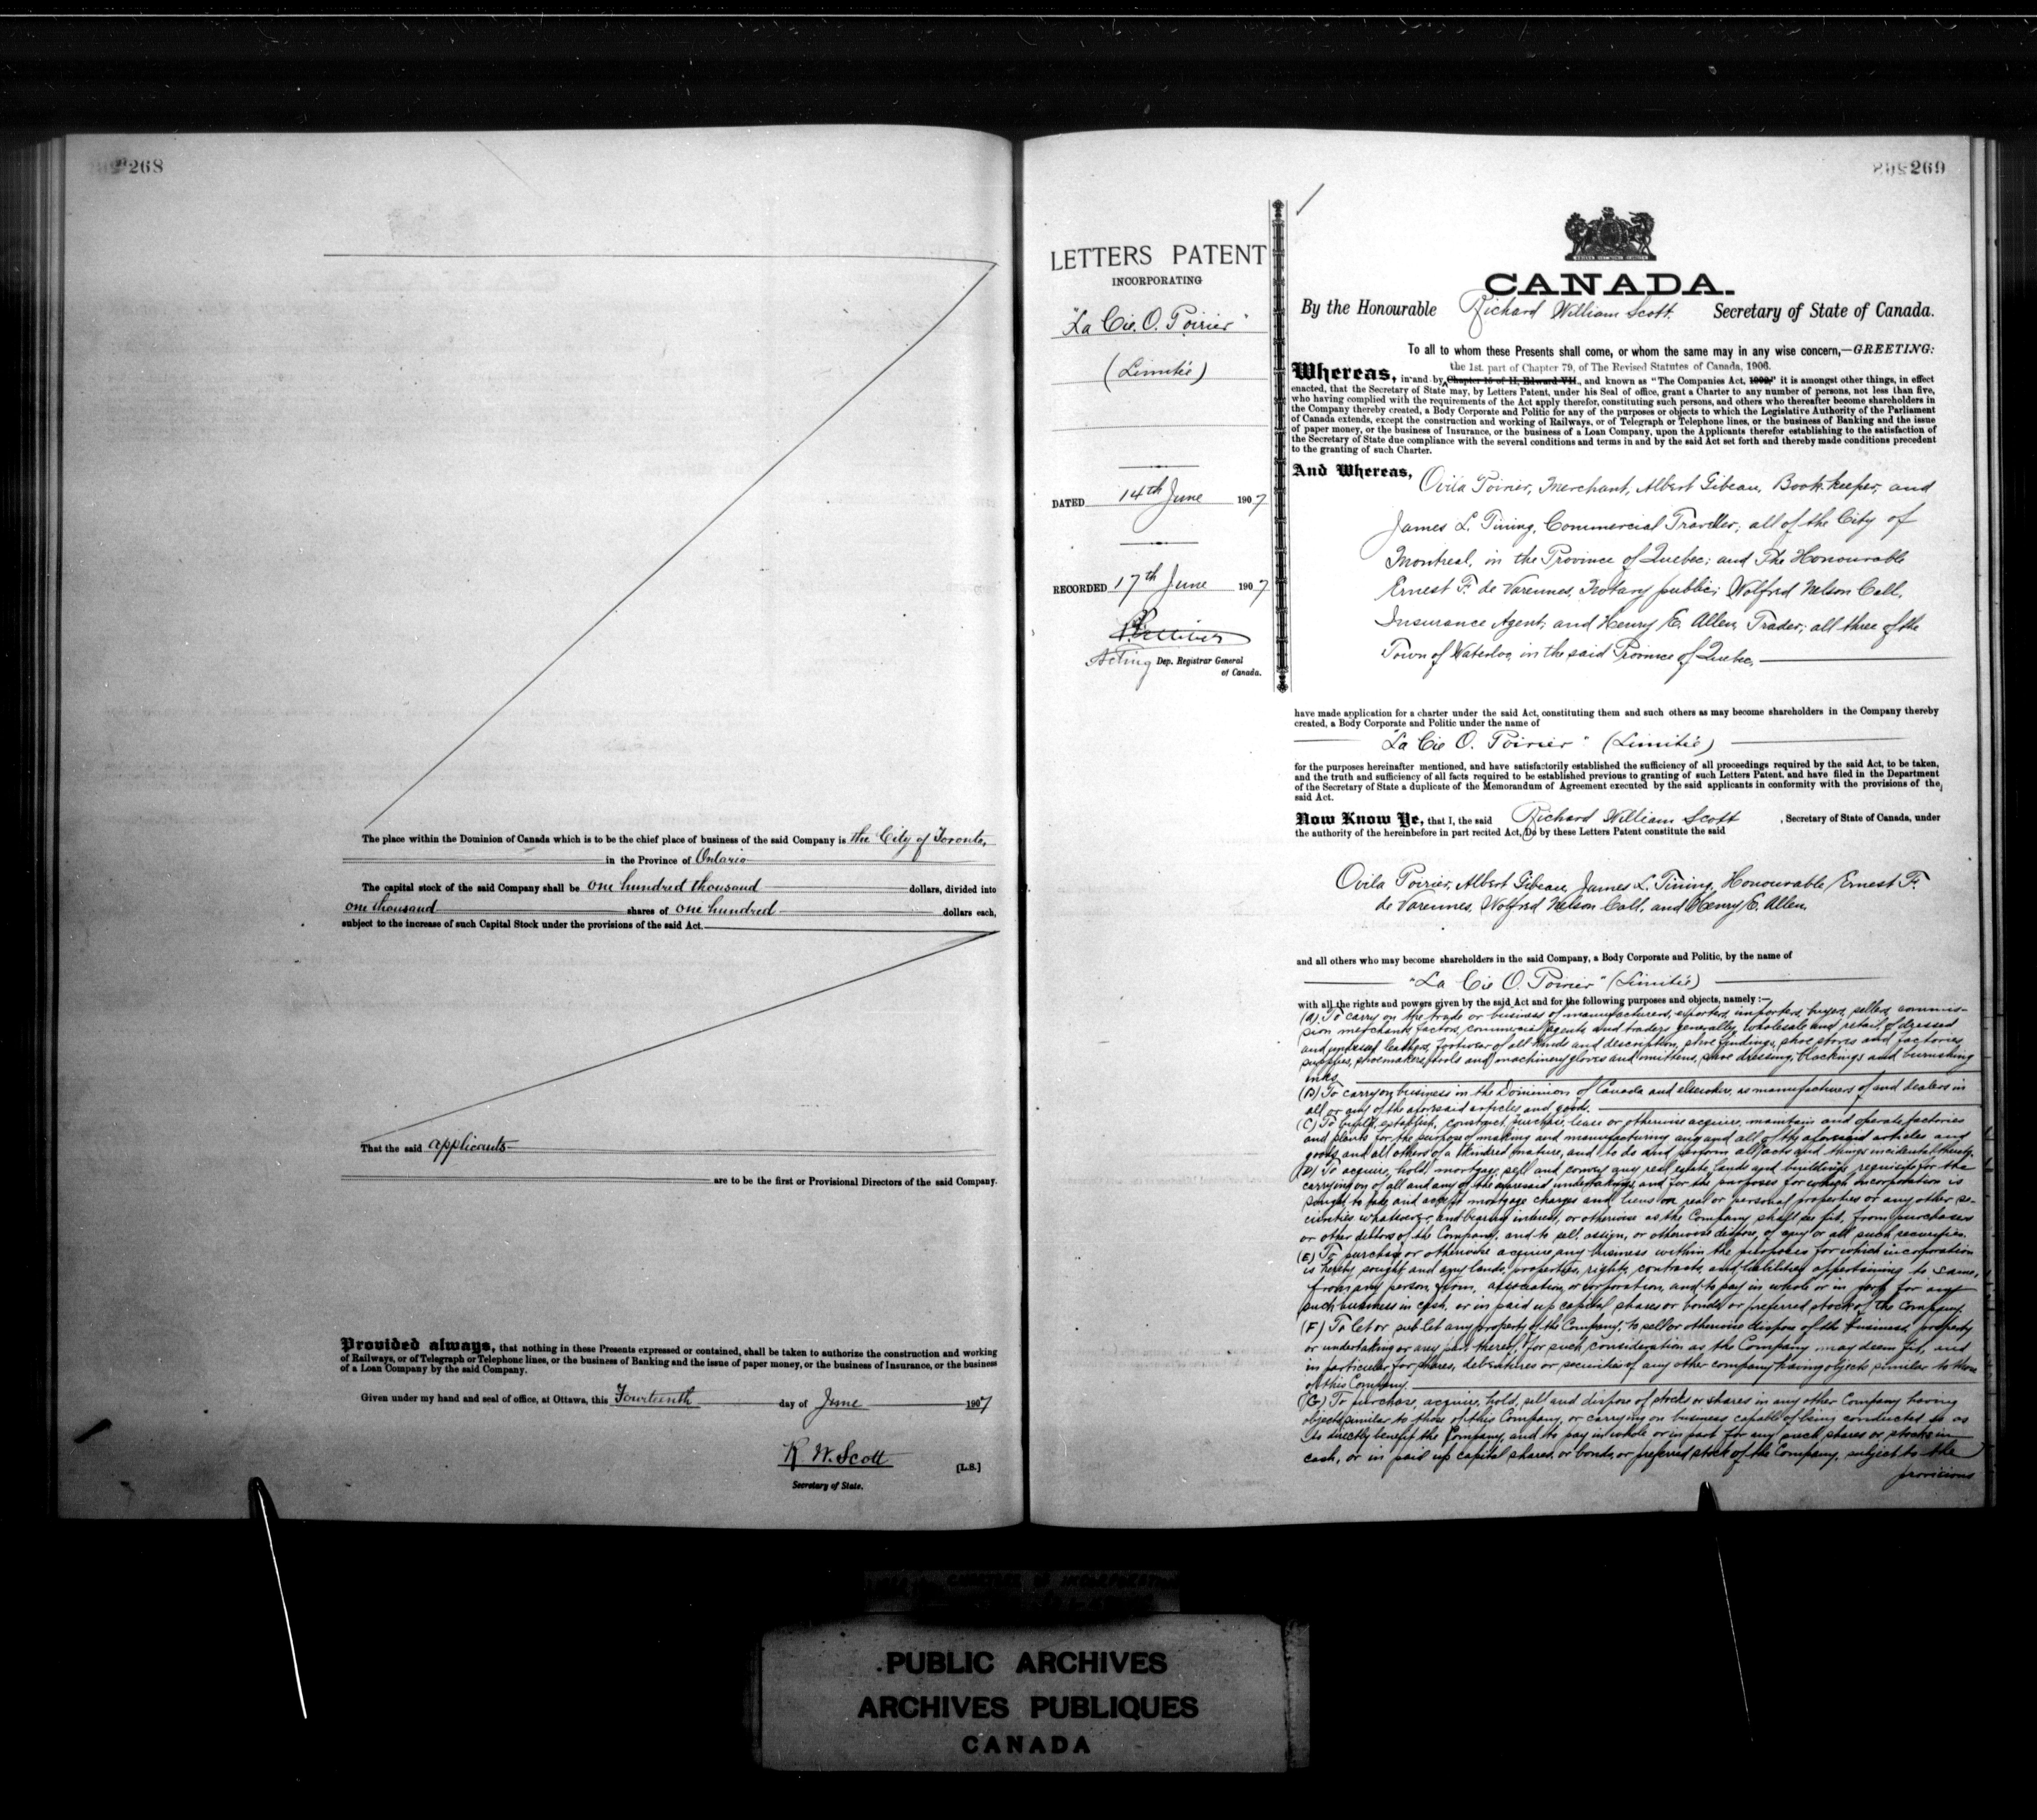 268
The place within the Dominion of Canada which is to be the chief place of business of the said Company is the City of Toronto,
in the Province of Ontario
The capital stock of the said Company shall be one hundred thousand dollars, divided into
one thousand shares of one hundred dollars each,
subject to the increase of such Capital Stock under the provisions of the said Act.
That the said applicants
are to be the first or Provisional Directors of the said Company.
Provided always, that nothing in these Presents expressed or contained, shall be taken to authorize the construction and working
of Railways, or of Telegraph or Telephone lines, or the business of Banking and the issue of paper money, or the business of Insurance, or the business
of a Loan Company by the said Company.
Given under my hand and seal of office, at Ottawa, this Fourteenth day of June 1907
R. W. Scott
[L.S.]
Secretary of State.
269
LETTERS PATENT
INCORPORATING
"La Cie. O. Poirier"
(Limitée)
DATED 14th June 1907
RECORDED 17th June 1907
Acting Dep. Registrar General
of Canada.
CANADA.
By the Honourable Richard William Scott Secretary of State of Canada.
To all to whom these Presents shall come, or whom the same may in any wise concern,—GREETING:
the 1st. part of Chapter 79, of The Revised Statutes of Canada, 1906.
Whereas, in and by Chapter 15 of II, Edward VII., and known as "The Companies Act, 1902," it is amongst other things, in effect
enacted, that the Secretary of State may, by Letters Patent, under his Seal of office, grant a Charter to any number of persons, not less than five,
who having complied with the requirements of the Act apply therefor, constituting such persons, and others who thereafter become shareholders in
the Company thereby created, a Body Corporate and Politic for any of the purposes or objects to which the Legislative Authority of the Parliament
of Canada extends, except the construction and working of Railways, or of Telegraph or Telephone lines, or the business of Banking and the issue
of paper money, or the business of Insurance, or the business of a Loan Company, upon the Applicants therefor establishing to the satisfaction of
the Secretary of State due compliance with the several conditions and terms in and by the said Act set forth and thereby made conditions precedent
to the granting of such Charter.
And Whereas, Ovila Poirier, Merchant, Albert Gibeau, Book-keeper, and
James L. Tining, Commercial Traveller; all of the City of
Montreal, in the Province of Quebec; and The Honourable
Ernest F. de Varennes, Notary public; Wolfred Nelson Call,
Insurance Agent; and Henry E. Allen, Trader; all three of the
Town of Waterloo, in the said Province of Quebec,
have made application for a charter under the said Act, constituting them and such others as may become shareholders in the Company thereby
created, a Body Corporate and Politic under the name of
"La Cie O. Poirier" (Limitée)
for the purposes hereinafter mentioned, and have satisfactorily established the sufficiency of all proceedings required by the said Act, to be taken,
and the truth and sufficiency of all facts required to be established previous to granting of such Letters Patent, and have filed in the Department
of the Secretary of State a duplicate of the Memorandum of Agreement executed by the said applicants in conformity with the provisions of the
said Act.
Now Know Ye, that I, the said Richard William Scott, Secretary of State of Canada, under
the authority of the hereinbefore in part recited Act, Do by these Letters Patent constitute the said
Ovila Poirier, Albert Gibeau, James L. Tining, Honourable Ernest F.
de Varennes, Wolfred Nelson Call, and Henry E. Allen,
and all others who may become shareholders in the said Company, a Body Corporate and Politic, by the name of
"La Cie O. Poirier" (Limitée)
with all the rights and powers given by the said Act and for the following purposes and objects, namely :—
(A) To carry on the trade or business of manufacturers, exporters, importers, buyers, sellers, commis-
sion merchants, factors, commercial agents and traders generally, wholesale and retail, of dressed
and undressed leathers, footwear of all kinds and description, shoe findings, shoe stores and factories
supplies, shoemakers, tools and machinery, gloves and mittens, shoe dressing, blackings and burnishing
inks.
(B) To carry on business in the Dominion of Canada and elsewhere, as manufacturers of and dealers in
all or any of the aforesaid articles and goods.
(C) To build, establish, construct, purchase, lease or otherwise acquire, maintain and operate factories
and plants for the purpose of making and manufacturing any and all of the aforesaid articles and
goods and all others of a kindred nature, and to do and perform all acts and things incidental thereto.
(D) To acquire, hold, mortgage, sell and convey any real estate, lands and buildings requisite for the
carrying on of all and any of the aforesaid undertakings, and for the purposes for which incorporation is
sought, to take and accept mortgage charges and liens on real or personal properties or any other se-
curities whatsoever, and bearing interest, or otherwise as the Company shall see fit, from purchasers
or other debtors of the Company, and to sell, assign, or otherwise dispose, of any or all such securities.
(E) To purchase or otherwise acquire any business within the purposes for which incorporation
is hereby sought and any lands, properties, rights, contracts, and liabilities appertaining to same,
from any person, firm, association, or corporation, and to pay in whole or in part for any
such business in cash, or in paid up capital, shares or bonds or preferred stock of the Company.
(F) To let or sub-let any property of the Company, to sell or otherwise dispose of the business, property
or undertaking or any part thereof, for such consideration as the Company may deem fit, and
in particular for shares, debentures or securities of any other company having objects similar to those
of this Company.
(G) To purchase, acquire, hold, sell and dispose of stocks or shares in any other Company having
objects similar to those of this Company, or carrying on business capable of being conducted so as
to directly benefit the Company, and to pay in whole or in part for any such shares or stocks in
cash, or in paid up capital shares, or bonds, or preferred stock of the Company, subject to the
provisions
PUBLIC ARCHIVES
ARCHIVES PUBLIQUES
CANADA